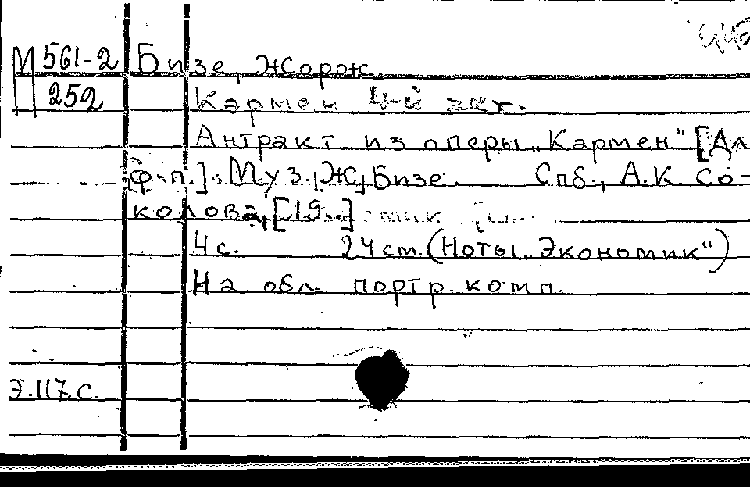 М 561-2 Бизе, Жорж.
252 Кармен 4-й акт.
Антракт из оперы „Кармен" [Дл
ф.-п.]. Муз. Ж. Бизе. Спб., А.К. Со-
колова, [19..]
4 с. 24 см. (Ноты „Экономик")
На обл. портр. комп.
Э.117.с.